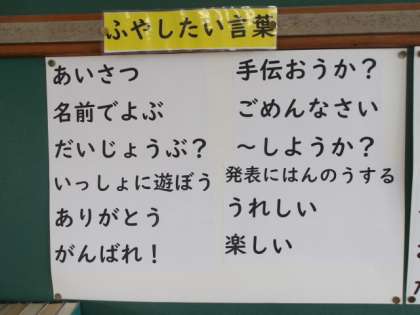 ふやしたい言葉
あいさつ
名前でよぶ
だいじょうぶ？
いっしょに遊ぼう
ありがとう
がんばれ！
手伝おうか？
ごめんなさい
～しようか？
発表にはんのうする
うれしい
楽しい